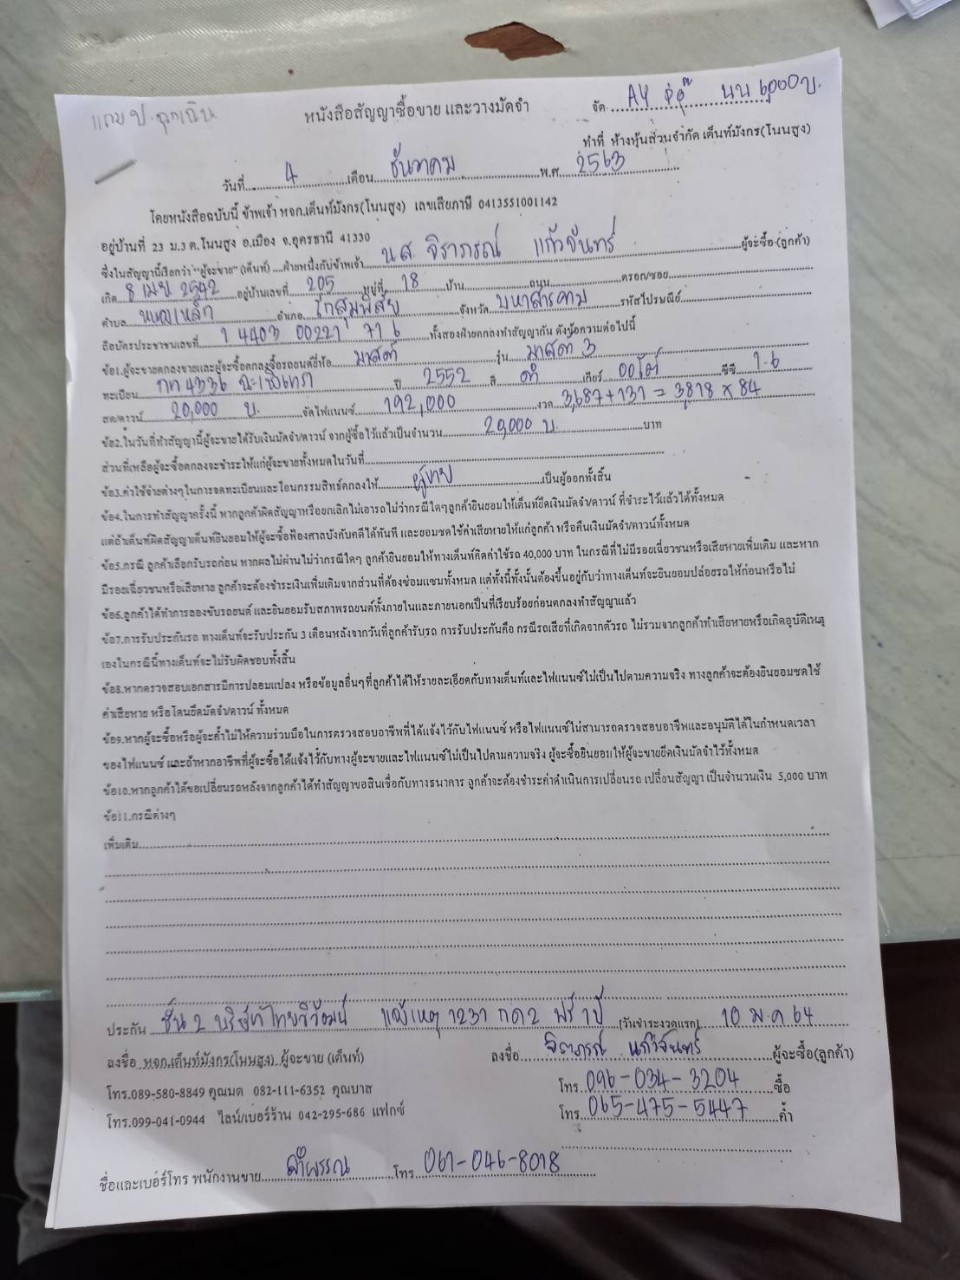 แถม ป. ฉุกเฉิน
หนังสือสัญญาซื้อขาย และวางมัดจำ
จัด AY นน ๖,๐๐๐ บ.
ทำที่ ห้างหุ้นส่วนจำกัด เต็นท์มังกร(โนนสูง)
วันที่ 4 เดือน ธันวาคม พ.ศ. 2563
โดยหนังสือฉบับนี้ ข้าพเจ้า หจก.เต็นท์มังกร(โนนสูง) เลขเสียภาษี 0413551001142
อยู่บ้านที่ 23 ม.3 ต.โนนสูง อ.เมือง จ.อุดรธานี 41330
ซึ่งในสัญญานี้เรียกว่า "ผู้จะขาย" (เต็นท์) ...ฝ่ายหนึ่งกับข้าพเจ้า น.ส. จิราภรณ์ แก้วจันทร์ ผู้จะซื้อ(ลูกค้า)
เกิด 8 เมษ 2542 อยู่บ้านเลขที่ 205 หมู่ที่ 18 บ้าน ถนน ตรอก/ซอย
ตำบล หนองเหล็ก อำเภอ โกสุมพิสัย จังหวัด มหาสารคาม รหัสไปรษณีย์
ถือบัตรประชาชนเลขที่ 1 4403 00221 71 6 ทั้งสองฝ่ายตกลงทำสัญญากัน ดังข้อความต่อไปนี้
ข้อ1.ผู้จะขายตกลงขายและผู้จะซื้อตกลงซื้อรถยนต์ยี่ห้อ มาสด้า รุ่น มาสดา 3
ทะเบียน กท 4336 ฉะเชิงเทรา ปี 2552 สี ดำ เกียร์ ออโต้ ซีซี 1.6
สด/ดาวน์ 20,000 บ. จัดไฟแนนซ์ 192,000 งวด 3,687+131 = 3,818 x 84
ข้อ2.ในวันที่ทำสัญญานี้ผู้จะขายได้รับเงินมัดจำ/ดาวน์ จากผู้ซื้อไว้แล้วเป็นจำนวน 20,000 บ. บาท
ส่วนที่เหลือผู้จะซื้อตกลงจะชำระให้แก่ผู้จะขายทั้งหมดในวันที่
ข้อ3.ค่าใช้จ่ายต่างๆในการจดทะเบียนและโอนกรรมสิทธ์ตกลงให้ ผู้ขาย เป็นผู้ออกทั้งสิ้น
ข้อ4.ในการทำสัญญาครั้งนี้ หากลูกค้าผิดสัญญาหรือยกเลิกไม่เอารถไม่ว่ากรณีใดๆลูกค้ายินยอมให้เต็นท์ยึดเงินมัดจำ/ดาวน์ ที่ชำระไว้แล้วได้ทั้งหมด
แต่ถ้าเต็นท์ผิดสัญญาเต็นท์ยินยอมให้ผู้จะซื้อฟ้องศาลบังคับคดีได้ทันที และยอมชดใช้ค่าเสียหายให้แก่ลูกค้า หรือคืนเงินมัดจำ/ดาวน์ทั้งหมด
ข้อ5.กรณี ลูกค้าเลือกรับรถก่อน หากผลไม่ผ่านไม่ว่ากรณีใดๆ ลูกค้ายินยอมให้ทางเต็นท์คิดค่าใช้รถ 40,000 บาท ในกรณีที่ไม่มีรอยเฉี่ยวชนหรือเสียหายเพิ่มเติม และหาก
มีรอยเฉี่ยวชนหรือเสียหาย ลูกค้าจะต้องชำระเงินเพิ่มเติมจากส่วนที่ต้องซ่อมแซมทั้งหมด แต่ทั้งนี้ทั้งนั้นต้องขึ้นอยู่กับว่าทางเต็นท์จะยินยอมปล่อยรถให้ก่อนหรือไม่
ข้อ6.ลูกค้าได้ทำการลองขับรถยนต์ และยินยอมรับสภาพรถยนต์ทั้งภายในและภายนอกเป็นที่เรียบร้อยก่อนตกลงทำสัญญาแล้ว
ข้อ7.การรับประกันรถ ทางเต็นท์จะรับประกัน 3 เดือนหลังจากวันที่ลูกค้ารับรถ การรับประกันคือ กรณีรถเสียที่เกิดจากตัวรถ ไม่รวมจากลูกค้าทำเสียหายหรือเกิดอุบัติเหตุ
เองในกรณีนี้ทางเต็นท์จะไม่รับผิดชอบทั้งสิ้น
ข้อ8.หากตรวจสอบเอกสารมีการปลอมแปลง หรือข้อมูลอื่นๆที่ลูกค้าได้ให้รายละเอียดกับทางเต็นท์และไฟแนนซ์ไม่เป็นไปตามความจริง ทางลูกค้าจะต้องยินยอมชดใช้
ค่าเสียหาย หรือโดนยึดมัดจำ/ดาวน์ ทั้งหมด
ข้อ9.หากผู้จะซื้อหรือผู้จะค้ำไม่ให้ความร่วมมือในการตรวจสอบอาชีพที่ได้แจ้งไว้กับไฟแนนซ์ หรือไฟแนนซ์ไม่สามารถตรวจสอบอาชีพและอนุมัติได้ในกำหนดเวลา
ของไฟแนนซ์ และถ้าหากอาชีพที่ผู้จะซื้อได้แจ้งไว้กับทางผู้จะขายและไฟแนนซ์ไม่เป็นไปตามความจริง ผู้จะซื้อยินยอมให้ผู้จะขายยึดเงินมัดจำไว้ทั้งหมด
ข้อ10.หากลูกค้าได้ขอเปลี่ยนรถหลังจากลูกค้าได้ทำสัญญาขอสินเชื่อกับทางธนาคาร ลูกค้าจะต้องชำระค่าดำเนินการเปลี่ยนรถ เปลี่ยนสัญญา เป็นจำนวนเงิน 5,000 บาท
ข้อ11.กรณีต่างๆ
เพิ่มเติม
ประกัน ชั้น 2 บริษัทไทยวิวัฒน์ แจ้งเหตุ 1231 กด 2 ฟรี 1 ปี (วันชำระงวดแรก) 10 ม.ค 64
ลงชื่อ หจก.เต็นท์มังกร(โนนสูง) ผู้จะขาย (เต็นท์) ลงชื่อ จิราภรณ์ แก้วจันทร์ ผู้จะซื้อ(ลูกค้า)
โทร.089-580-8849 คุณมด 082-111-6352 คุณบาส โทร. 096-034-3204 ซื้อ
โทร.099-041-0944 ไลน์/เบอร์ร้าน 042-295-686 แฟกซ์ โทร. 065-475-5447 ค้ำ
ชื่อและเบอร์โทร พนักงานขาย ลำพรรณ โทร. 061-046-8018